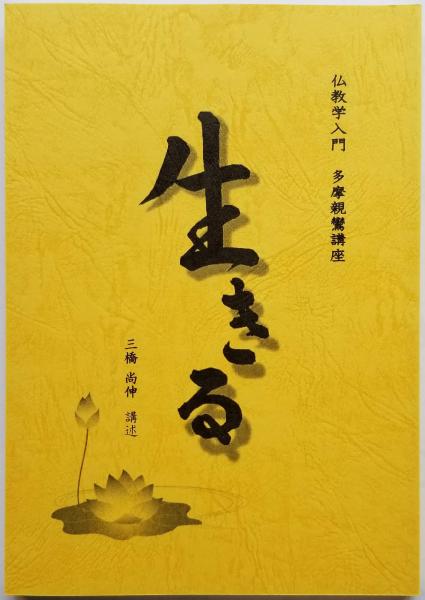 仏教学入門 多摩親鸞講座
生きる
三橋 尚伸 講述